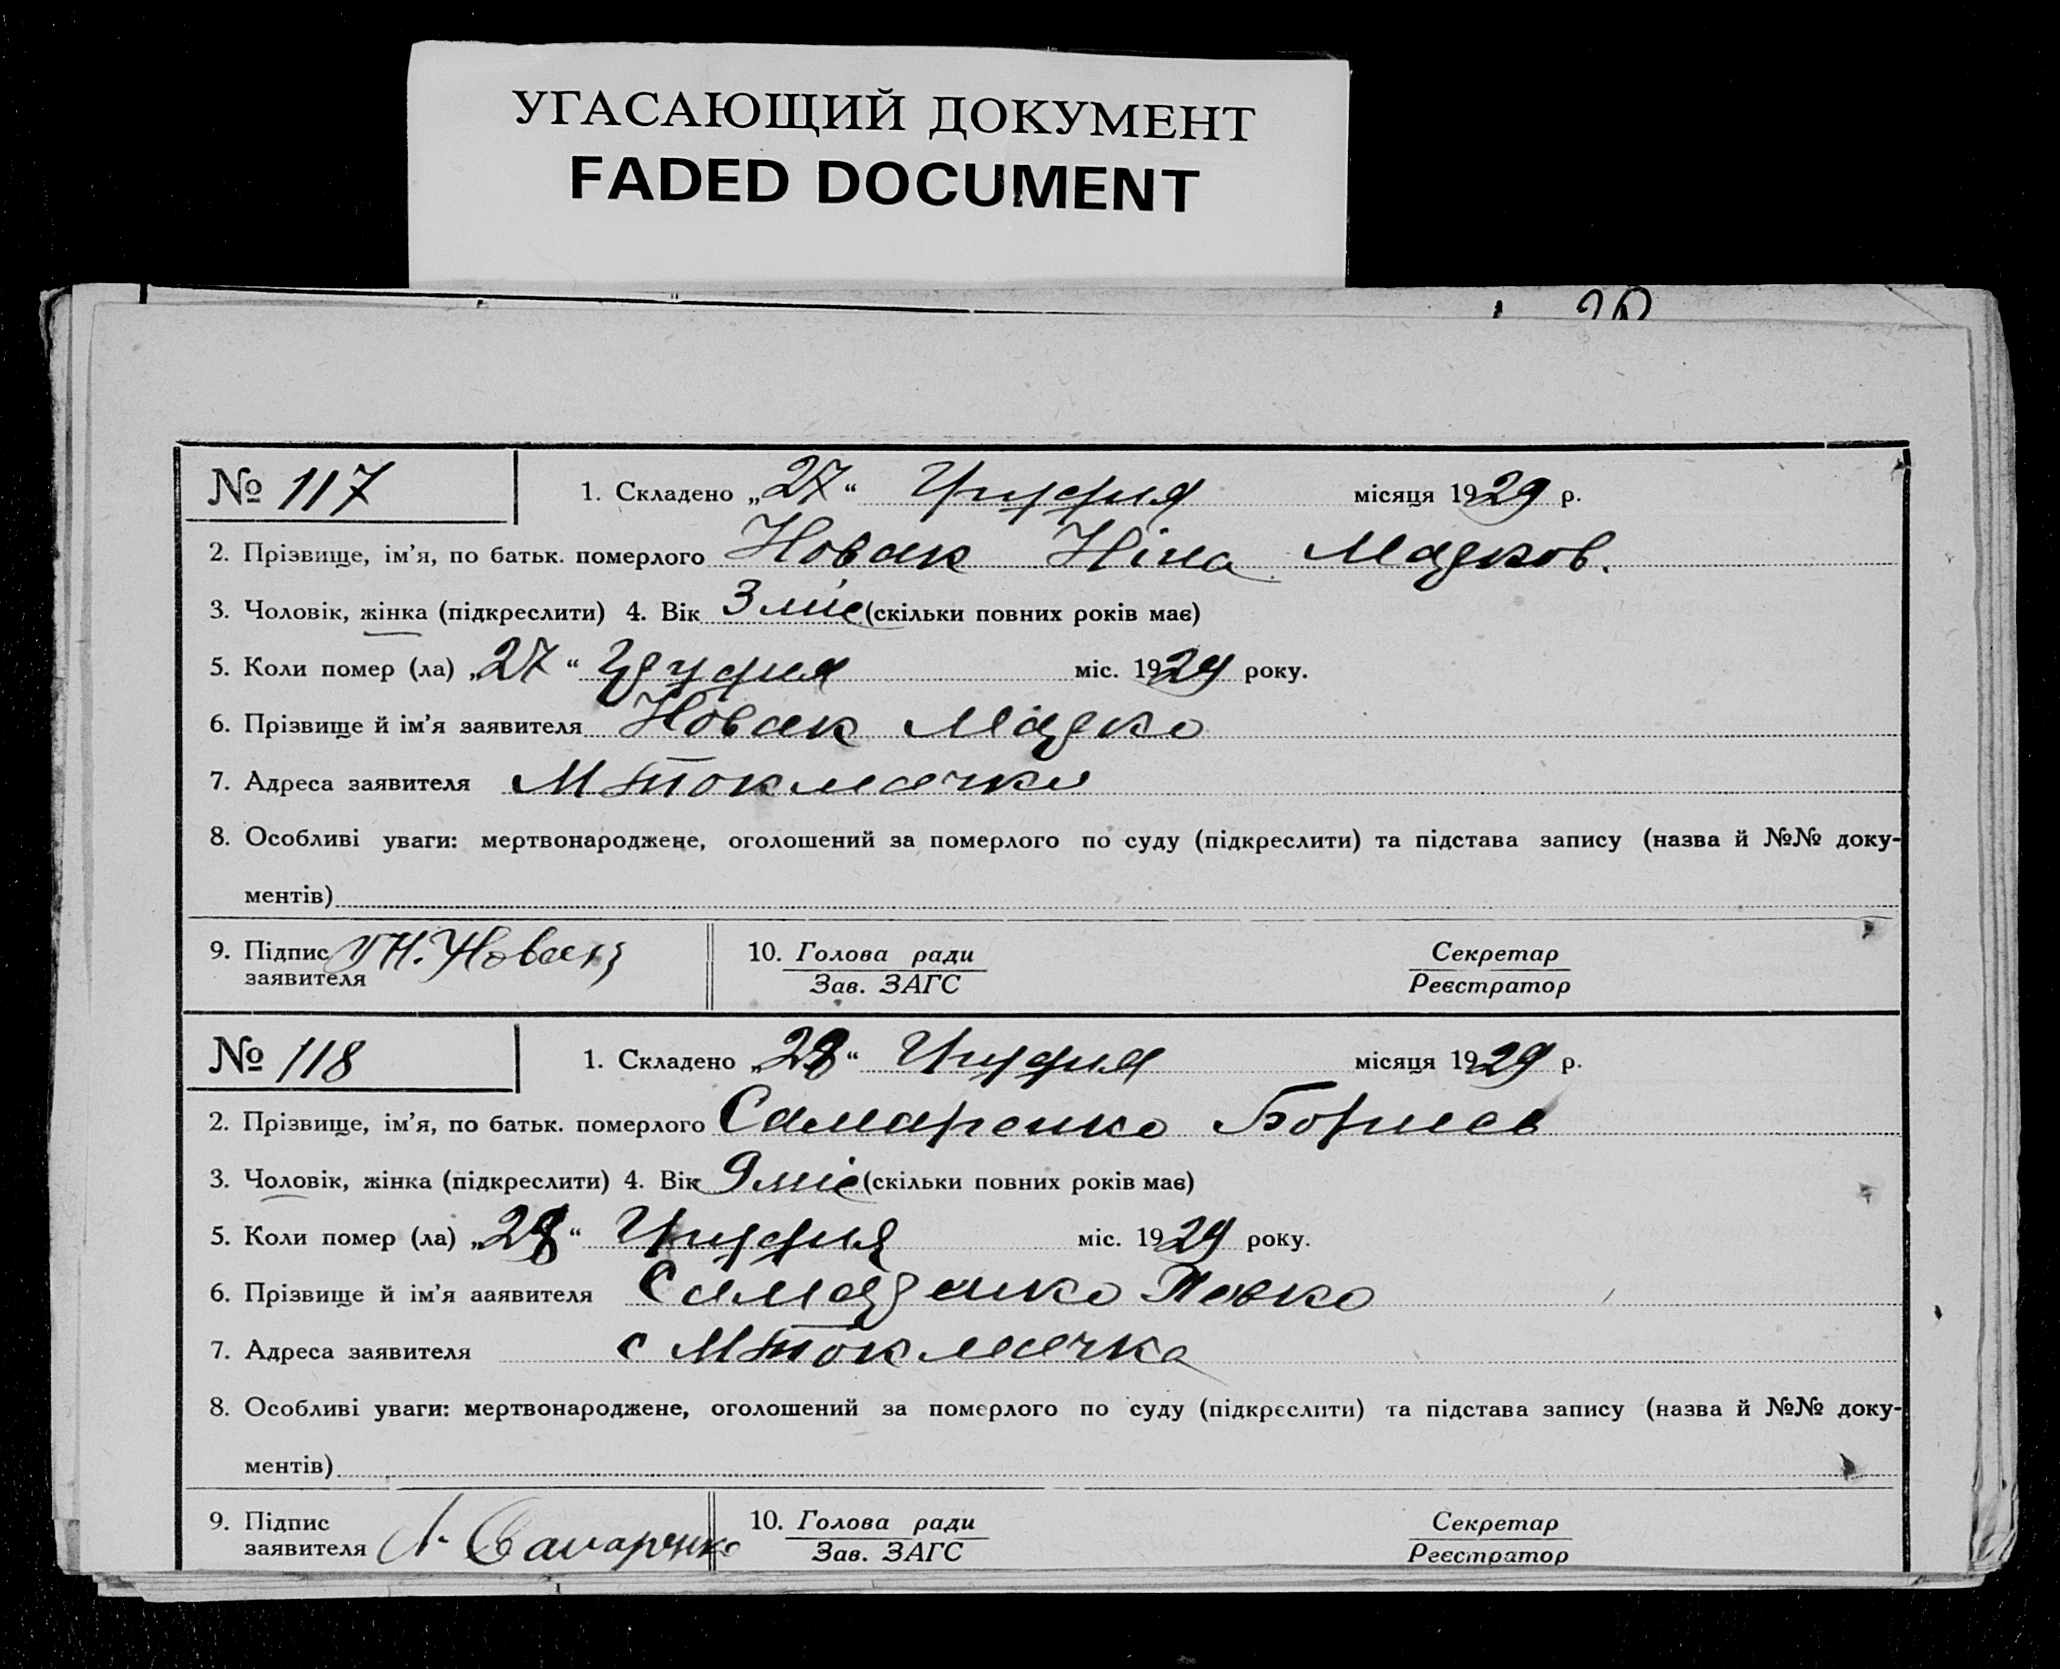 УГАСАЮЩИЙ ДОКУМЕНТ
FADED DOCUMENT
№ 117 1. Складено „27“ місяця 1929 р.
2. Прізвище, ім’я, по батьк. померлого Новак Ніна Марков.
3. Чоловік, жінка (підкреслити) 4. Вік 3 міс (скільки повних років має)
5. Коли помер (ла) „27“ міс. 1929 року.
6. Прізвище й ім’я заявителя Новак Марко
7. Адреса заявителя М Токмачка
8. Особливі уваги: мертвонароджене, оголошений за померлого по суду (підкреслити) та підстава запису (назва й №№ доку-
ментів)
9. Підпис Новак 10. Голова ради Секретар
заявителя Зав. ЗАГС Реєстратор
№ 118 1. Складено „28“ місяця 1929 р.
2. Прізвище, ім’я, по батьк. померлого Самаренко Борис
3. Чоловік, жінка (підкреслити) 4. Вік 9 міс (скільки повних років має)
5. Коли помер (ла) „28“ міс. 1929 року.
6. Прізвище й ім’я ааявителя Самаренко
7. Адреса заявителя с М Токмачка
8. Особливі уваги: мертвонароджене, оголошений за померлого по суду (підкреслити) та підстава запису (назва й №№ доку-
ментів)
9. Підпис Самаренко 10. Голова ради Секретар
заявителя Зав. ЗАГС Реєстратор